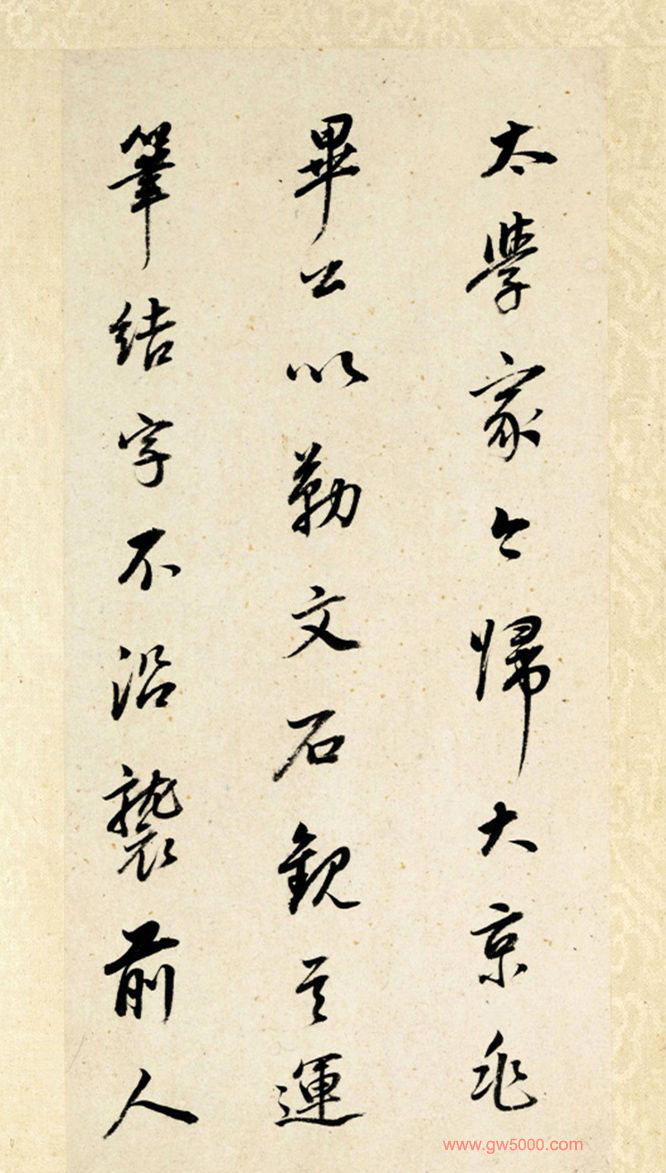 太學家今歸大京兆
畢公以勒文石觀其運
筆結字不沿襲前人
www.gw5000.com